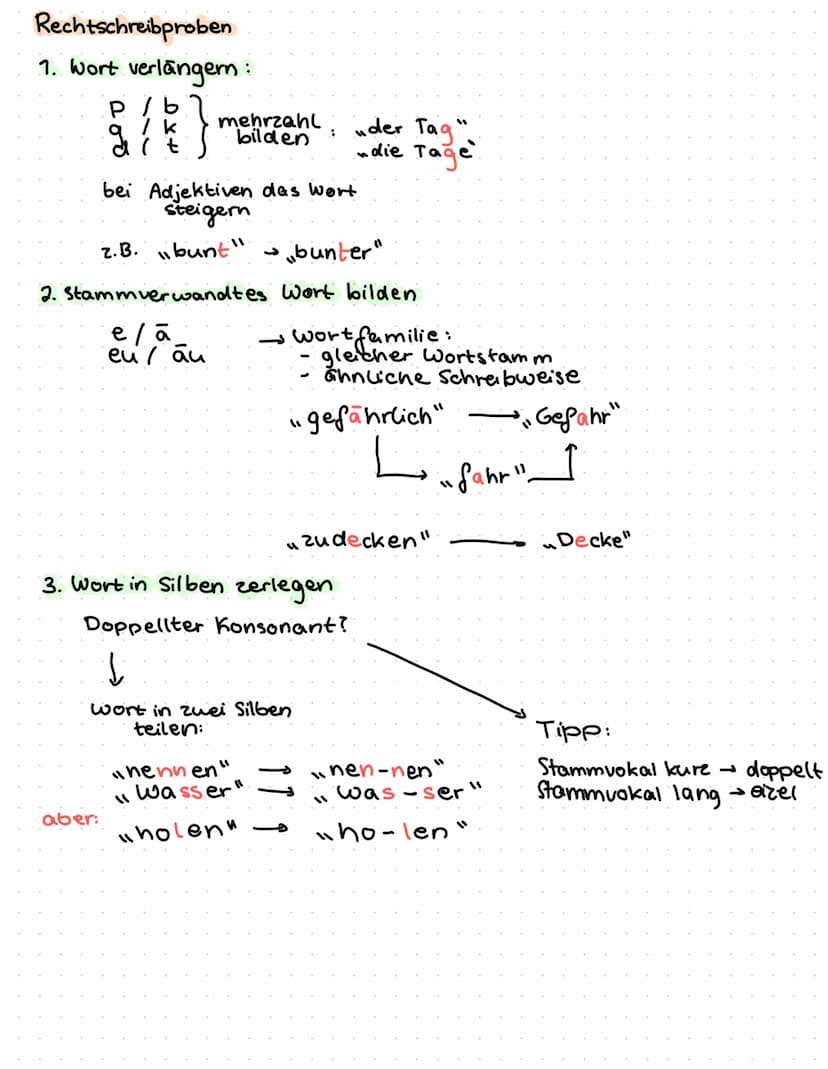 Rechtschreibproben
1. Wort verlängern:
p / b
g / k } mehrzahl bilden : „der Tag“
d / t „die Tage“
bei Adjektiven das Wort
steigern
z.B. „bunt“ → „bunter“
2. Stammverwandtes Wort bilden
e / ä → Wortfamilie:
eu / äu - gleicher Wortstamm
- ähnliche Schreibweise
„gefährlich“ → „Gefahr“
„fahr“
„zudecken“ → „Decke“
3. Wort in Silben zerlegen
Doppellter Konsonant?
↓
Wort in zwei Silben
teilen:
„nennen“ → „nen-nen“
„Wasser“ → „was-ser“
aber: „holen“ → „ho-len“
Tipp:
Stammvokal kurz → doppelt
Stammvokal lang →